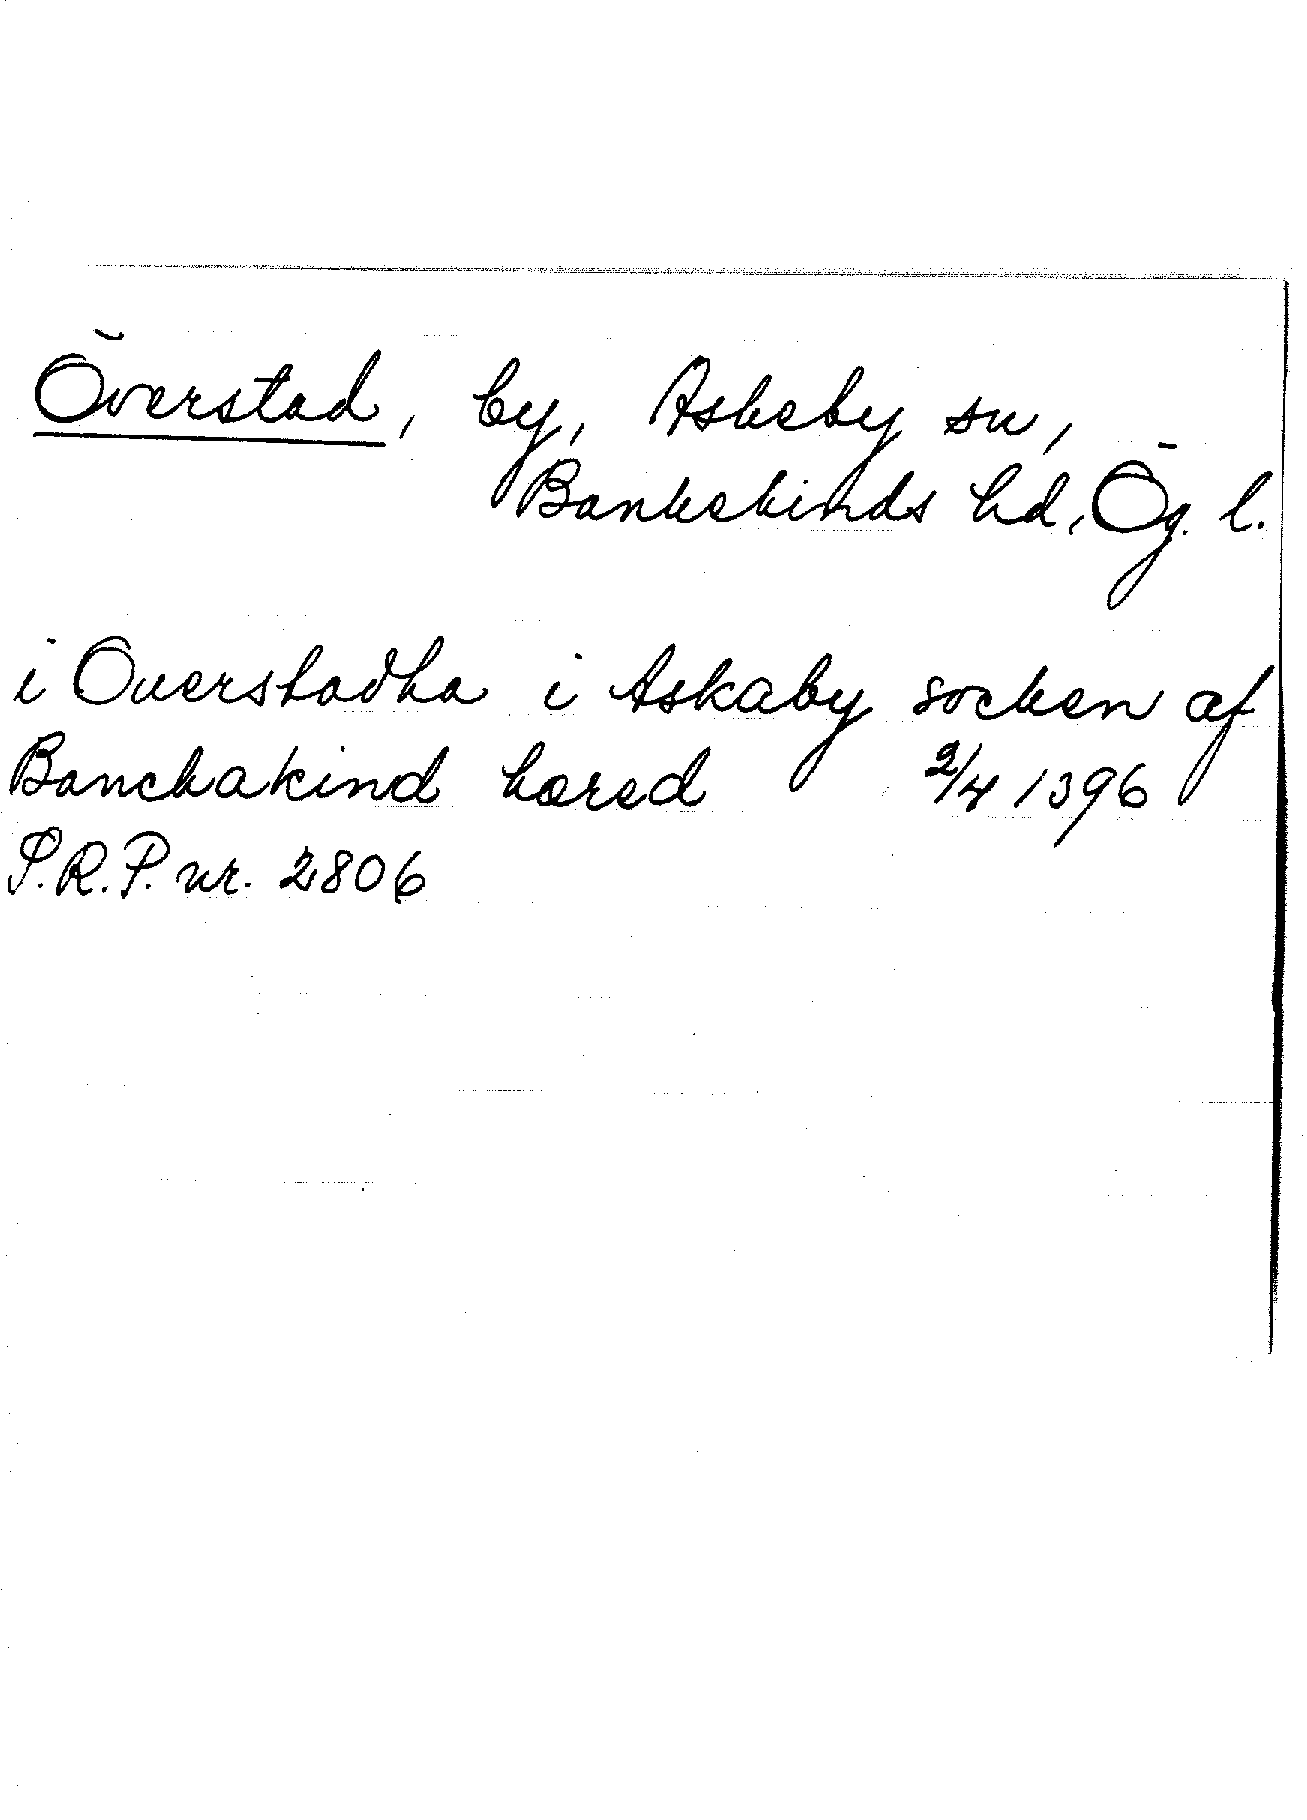 Överstad, by, Askeby sn,
Bankekinds hd, Ög. l.
i Ouerstadha i Askaby socken af
Banchakind hæred 2/4 1396
S.R.P. nr. 2806